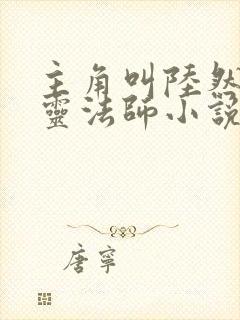 主角叫陸然
靈法師小說
唐寧